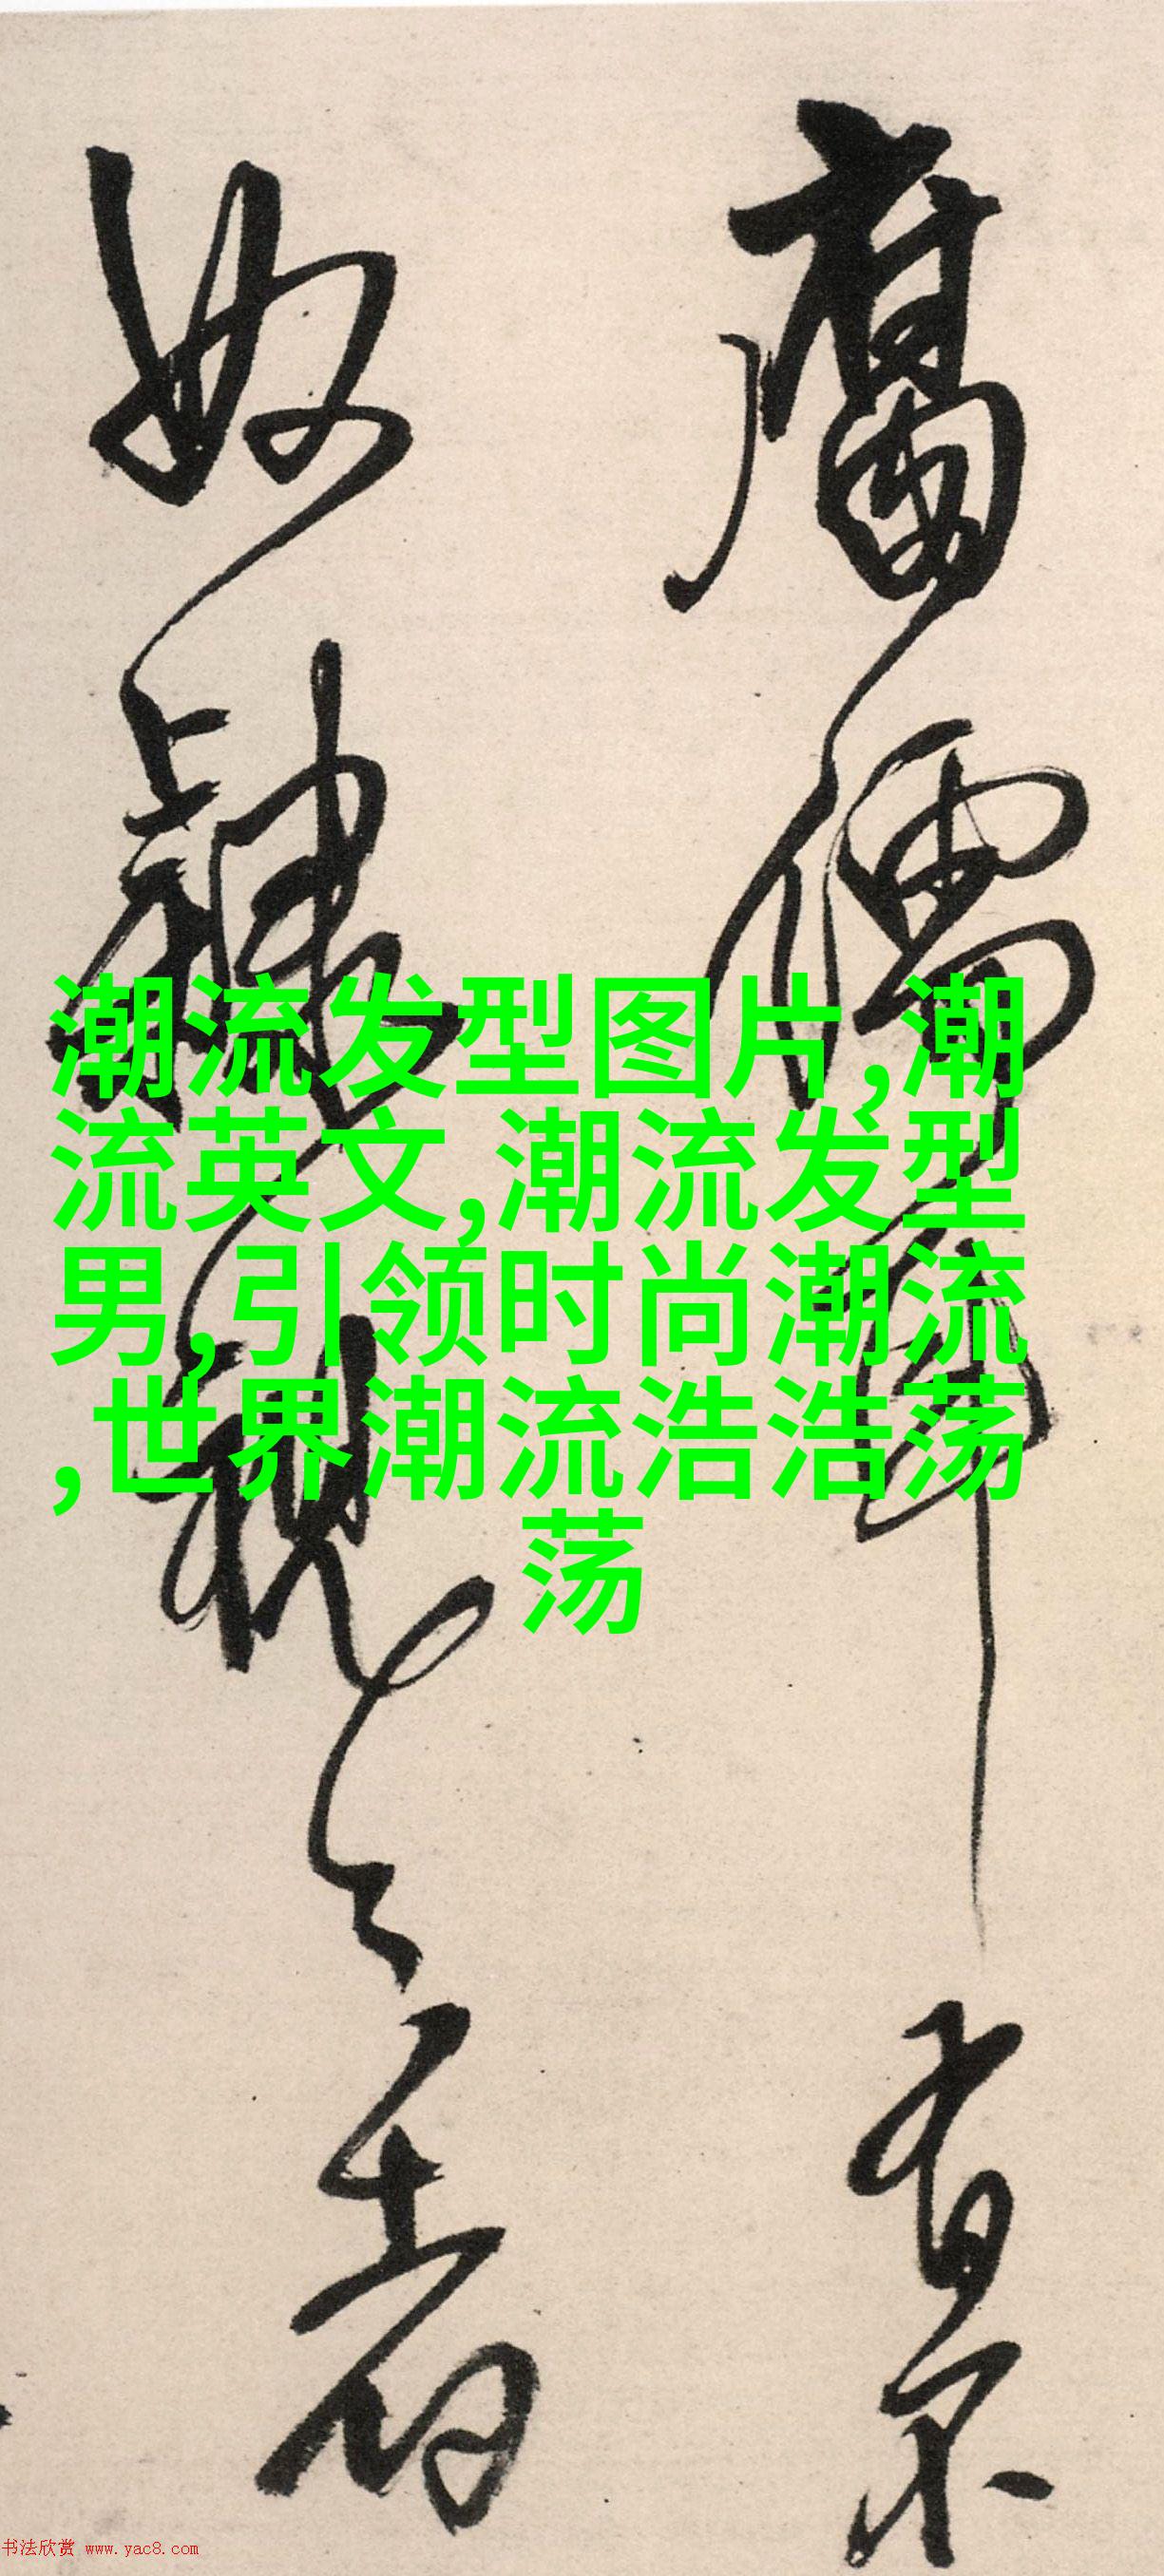 腐儒碎
有不
如肆
者
潮流发型图片,潮
流英文,潮流发型
男,引领时尚潮流
,世界潮流浩浩荡
荡
书法欣赏 www.yac8.com